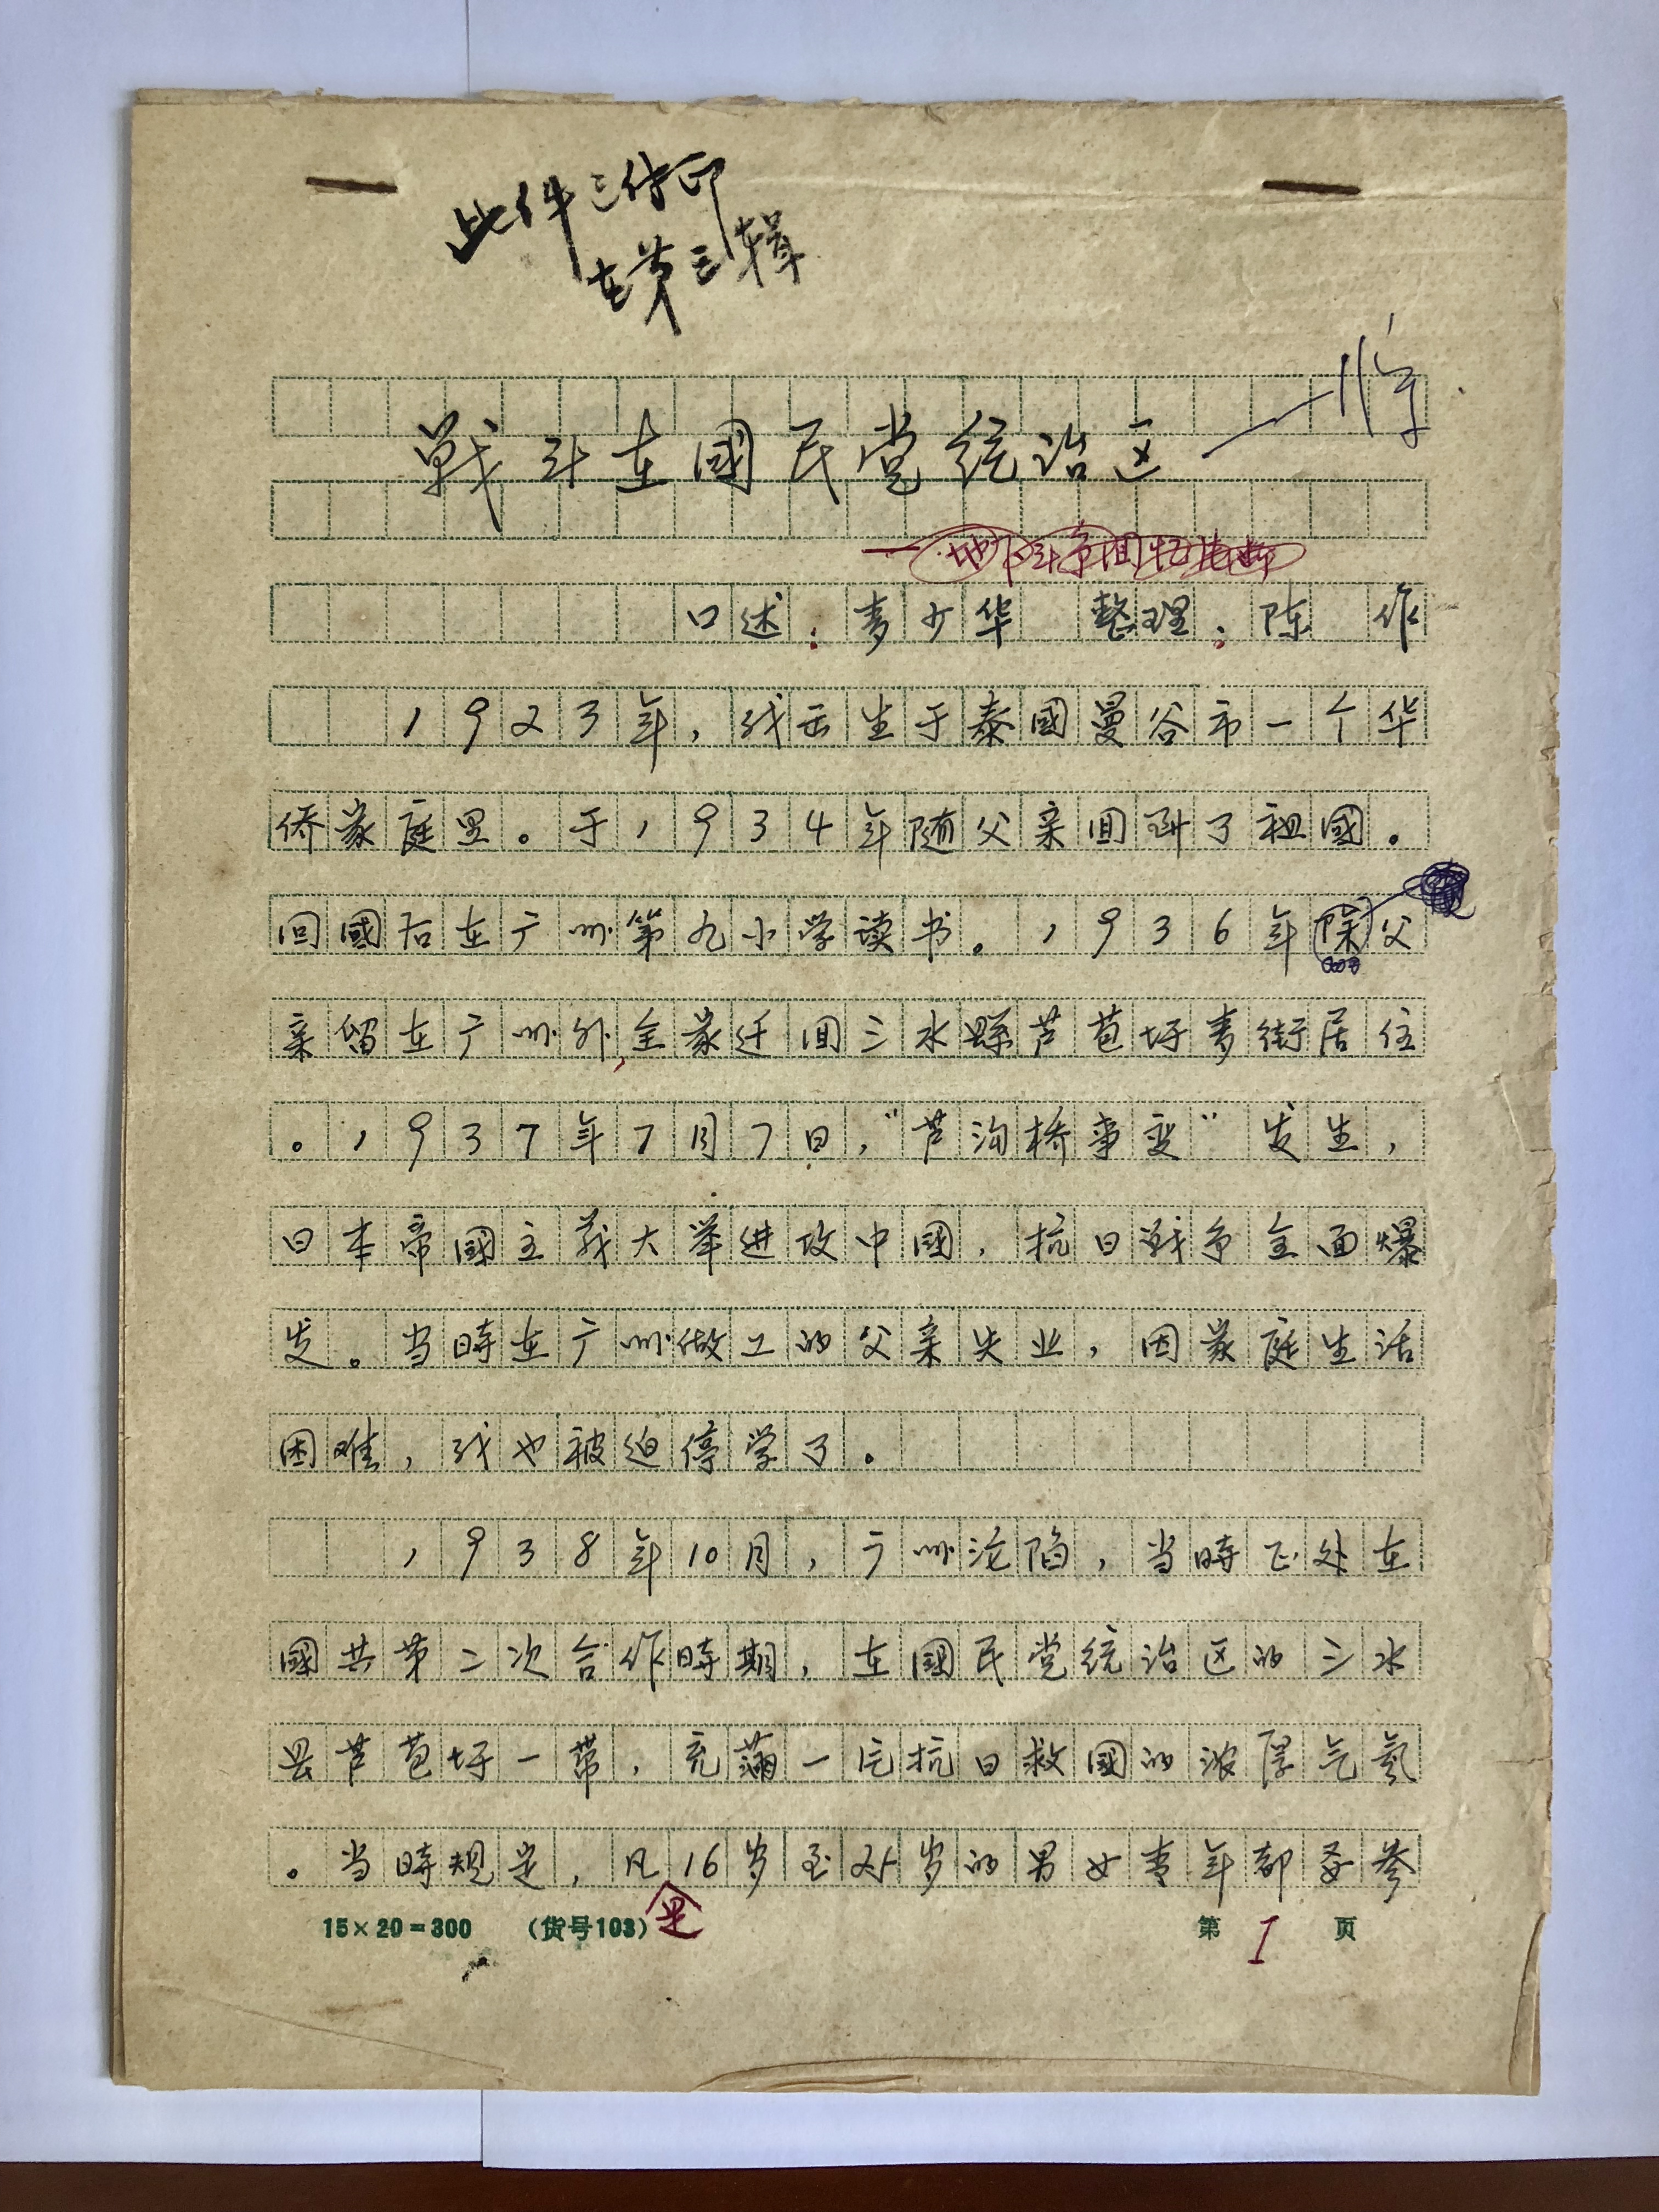 此件已付印
在第三辑
战斗在國民党统治区
一地下斗争回忆片断
口述：麦少华 整理：陈 作
1923年，我出生于泰國曼谷市一个华
侨家庭里。于1934年随父亲回到了祖國。
回國后在广州第九小学读书。1936年除父
亲留在广州外,全家迁回三水縣芦苞圩麦街居住
。1937年7月7日,“芦沟桥事变”发生，
日本帝國主义大举进攻中國，抗日战争全面爆
发。当時在广州做工的父亲失业，因家庭生活
困难，我也被迫停学了。
1938年10月，广州沦陷，当時正处在
國共第二次合作時期，在國民党统治区的三水
县芦苞圩一带，充满一片抗日救國的浓厚气氛
。当時规定，凡是16岁至25岁的男女青年都要参
15×20=300 （货号103） 第 1 页